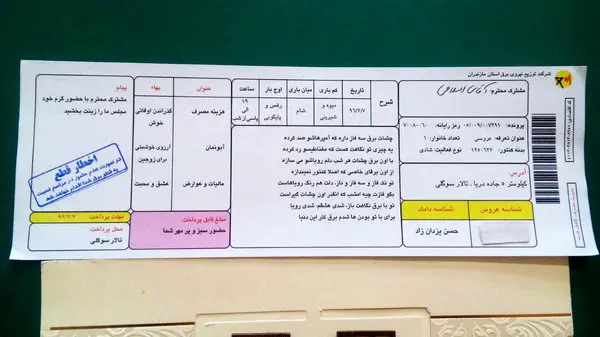 شرکت توزیع نیروی برق استان مازندران
مشترک محترم:
پرونده: ۰۵/۰۰۹/۰۷۴۹۱ رمز رایانه: ۷۰۰۸۰۶۰
عنوان تعرفه: عروسی تعداد خانوار: ۱
بدنه کنتور: ۱۲۵۰۶۲۷ نوع فعالیت: شادی
آدرس:
کیلومتر ۶ جاده دریا ، تالار سوگلی
شناسه عروس شناسه داماد
حسن یزدان زاد
شرح تاریخ کم باری میان باری اوج بار ساعت
۹۶/۲/۷ میوه و شیرینی شام رقص و پایکوبی ۱۹ الی پاسی از شب
چشات برق سه فاز داره که آمپرهاشو صد کرده
یه چیزی تو نگاهت هست که مغناطیسو رد کرده
با اون چشات هر شب دلم رویاشو می سازه
از اون برقای خاصی که اصلا کنتور نمیندازه
تو تک فاز و سه فاز و ناز، دلت هم رنگ رویاهاست
بگو فازت چیه امشب که انقدر اون چشات گیراست
تو با برق نگاهت باز، شدی عشقم، شدی رویا
برای با تو بودن ها شدم برق کار این دنیا
عنوان بهاء
هزینه مصرف گذراندن اوقاتی خوش
آبونمان آرزوی خوشبختی برای زوجین
مالیات و عوارض عشق و محبت
مبلغ قابل پرداخت
حضور سبز و پر مهر شما
پیام
مشترک محترم با حضور گرم خود
مجلس ما را زینت بخشید
اخطار قطع
در صورت عدم حضور در مراسم نسبت
به قطع برق شما اقدام خواهد شد.
مهلت پرداخت ۹۶/۲/۷
محل پرداخت
تالار سوگلی